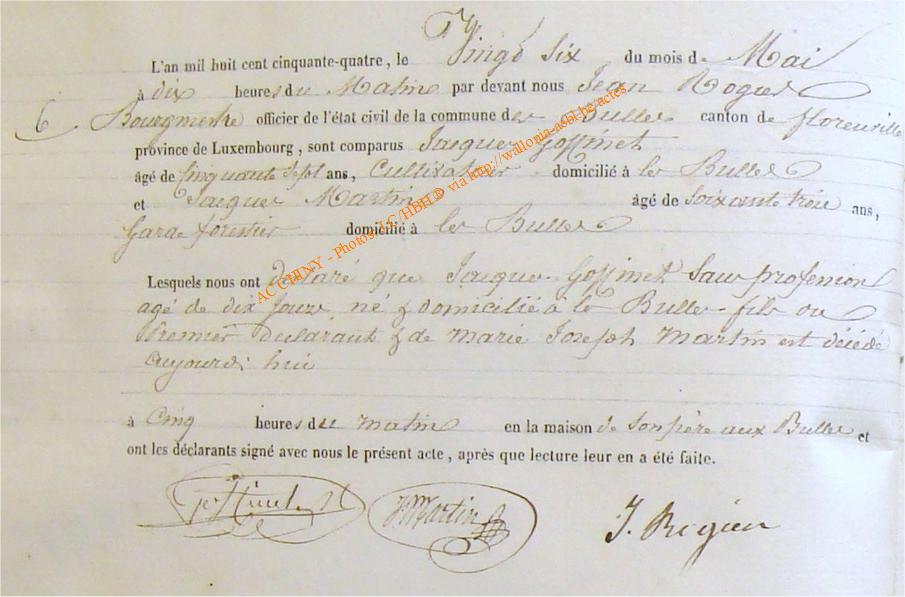 L'an mil huit cent cinquante-quatre, le Vingt Six du mois de Mai
à dix heures du Matin par devant nous Jean Rogier
6 Bourgmestre officier de l'état civil de la commune des Bulles canton de florenville
province de Luxembourg, sont comparus Jacques Goffinet
âgé de Cinquante Sept ans, Cultivateur domicilié à les Bulles
et Jacques Martin âgé de Soixante trois ans,
Garde forestier domicilié à les Bulles
Lesquels nous ont déclaré que Jacques Goffinet Sans profession
agé de dix Jours, né & domicilié à les Bulles fils du
Premier déclarant & de Marie Joseph Martin est décédé
aujourd'hui
à Cinq heures du matin en la maison de Son père aux Bulles et
ont les déclarants signé avec nous le présent acte, après que lecture leur en a été faite.
J. Martin J. Rogier
AC CHINY - Photos LC/HBH® via http://wallonia-asbl.be/actes